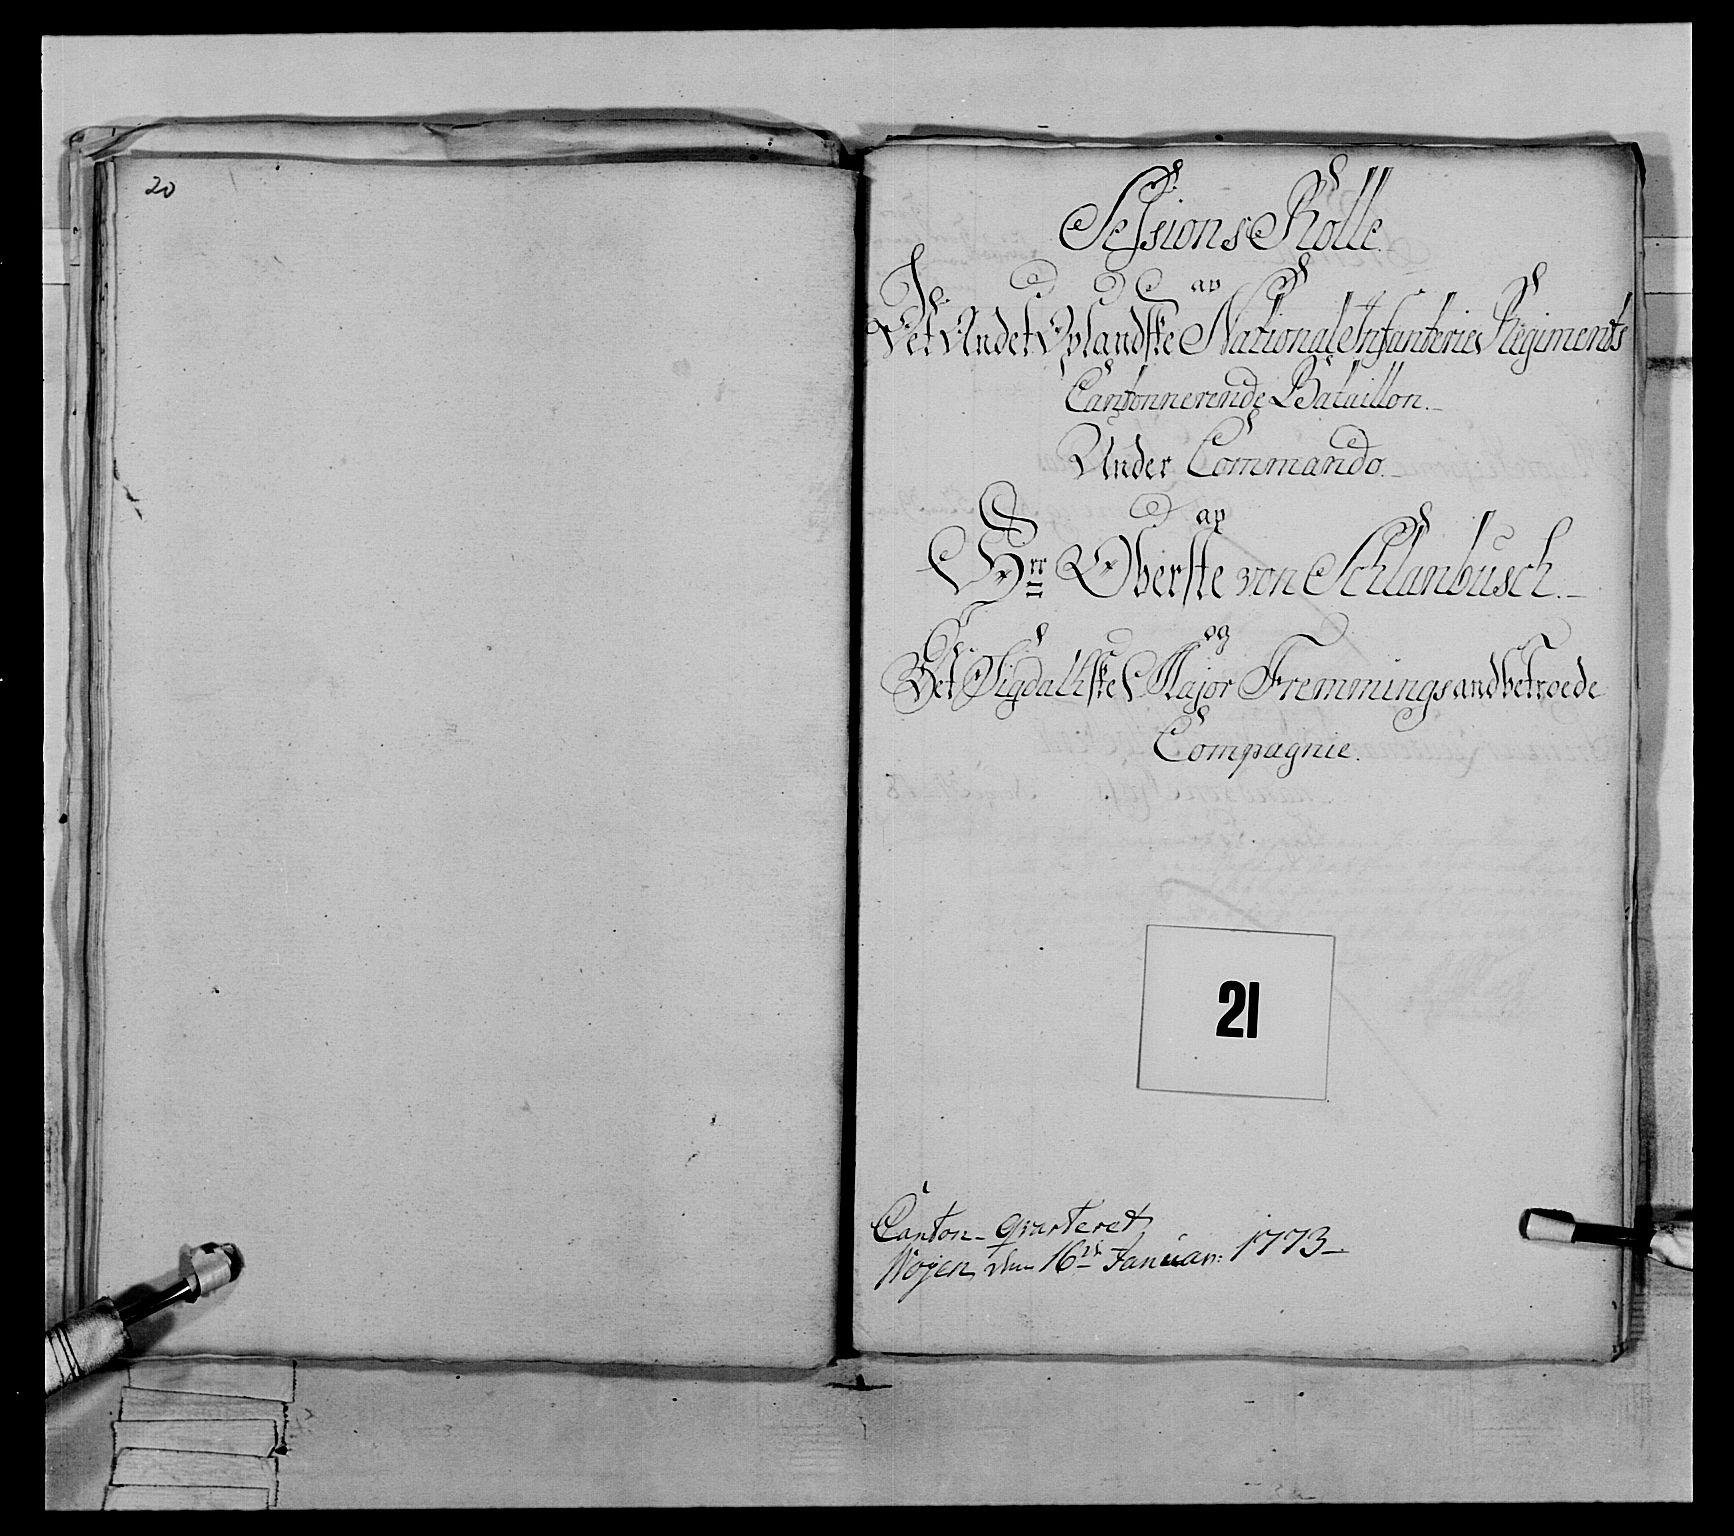 20
Sessions Rolle
af
Det Andet Oplandske National Infanterie Regiments
Cantonnerende Bataillon.
Under Commando.
af
Hrr Oberste von Schlanbusch.
og
Det Sigdahlske Major Fremmings andbetroede
Compagnie.
21
Canton-qvarteret
den 16de Januar: 1773